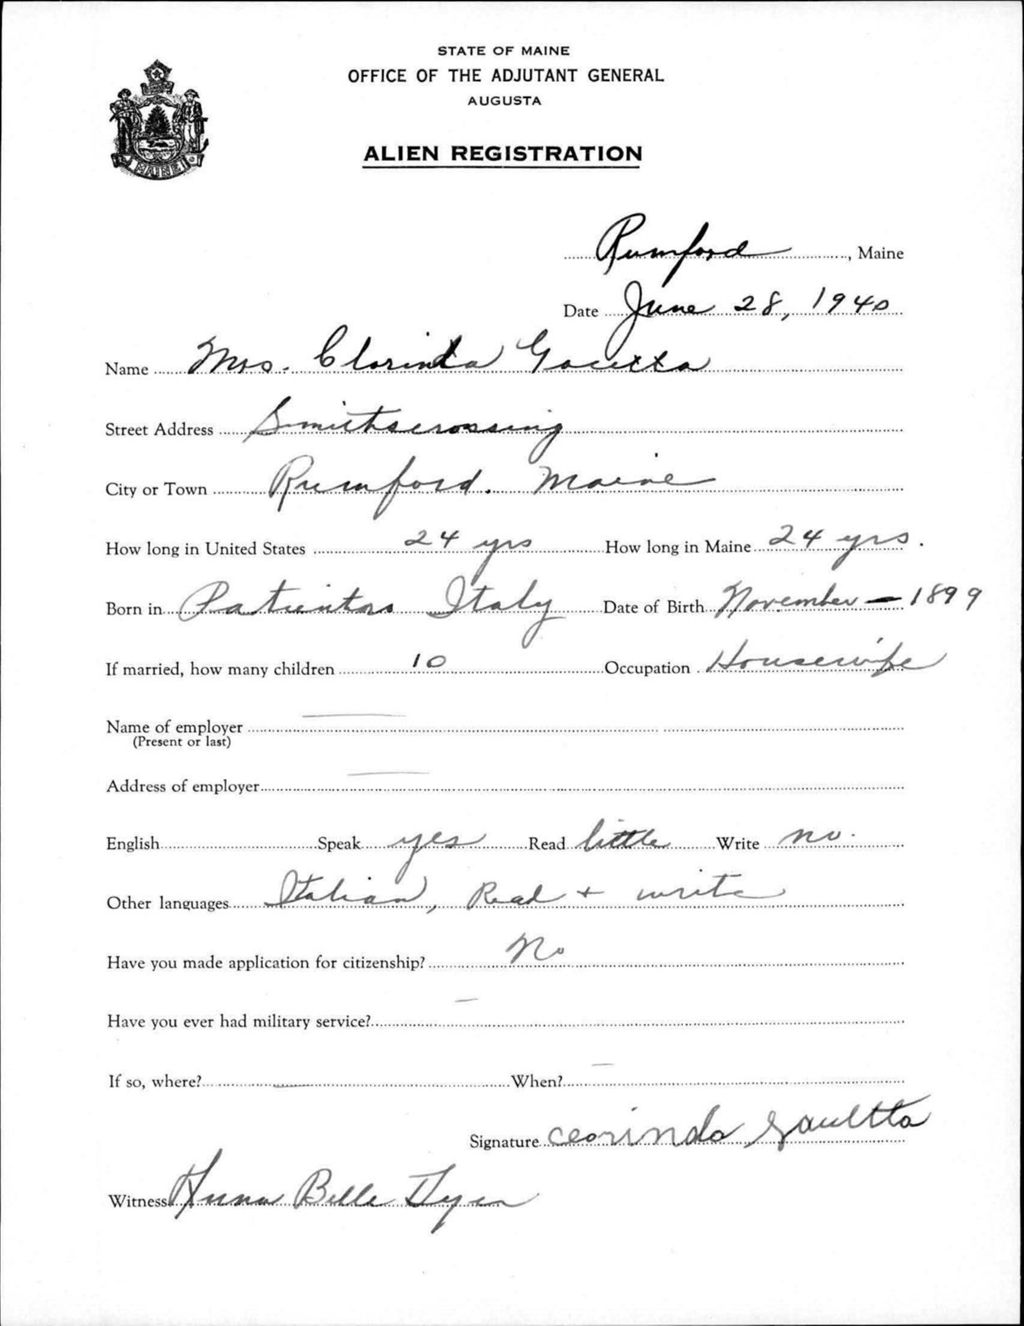 STATE OF MAINE
OFFICE OF THE ADJUTANT GENERAL
AUGUSTA
ALIEN REGISTRATION
MAINE
Rumford, Maine
Date June 28, 1940
Name Mrs. Clorinda
Street Address Smithscrossing
City or Town Rumford. Maine
How long in United States 24 yrs How long in Maine 24 yrs.
Born in Italy Date of Birth November - 1899
If married, how many children 10 Occupation Housewife
Name of employer
(Present or last)
Address of employer
English Speak yes Read little Write no.
Other languages Italian, Read + write
Have you made application for citizenship? No
Have you ever had military service? -
If so, where? - When? -
Signature Clorinda
Witness Anna Belle